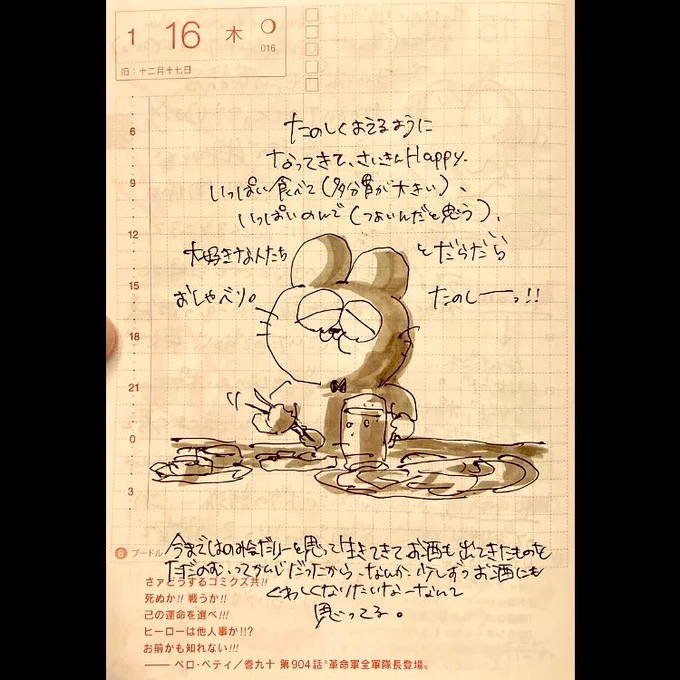 1 16 木
016
旧:十二月十七日
たのしくよえるように
なってきて、さいきんHappy.
いっぱい食べて(多分胃が大きい)、
いっぱいのんで(つよいんだと思う)、
大好きな人たち とだらだら
おしゃべり。 たのしーっ!!
6
9
12
15
18
21
0
3
今までは飲み会だりーと思って生きてきてお酒も出てきたものを
ただのむ、ってかんじだったから、なんか、少しずつお酒にも
くわしくなりたいなーなんて
思ってる。
8 プードル
さァどうするゴミクズ共!!
死ぬか!! 戦うか!!
己の運命を選べ!!!
ヒーローは他人事か!!?
お前かも知れない!!!
—— ベロ・ベティ/巻九十 第904話“革命軍全軍隊長登場〟